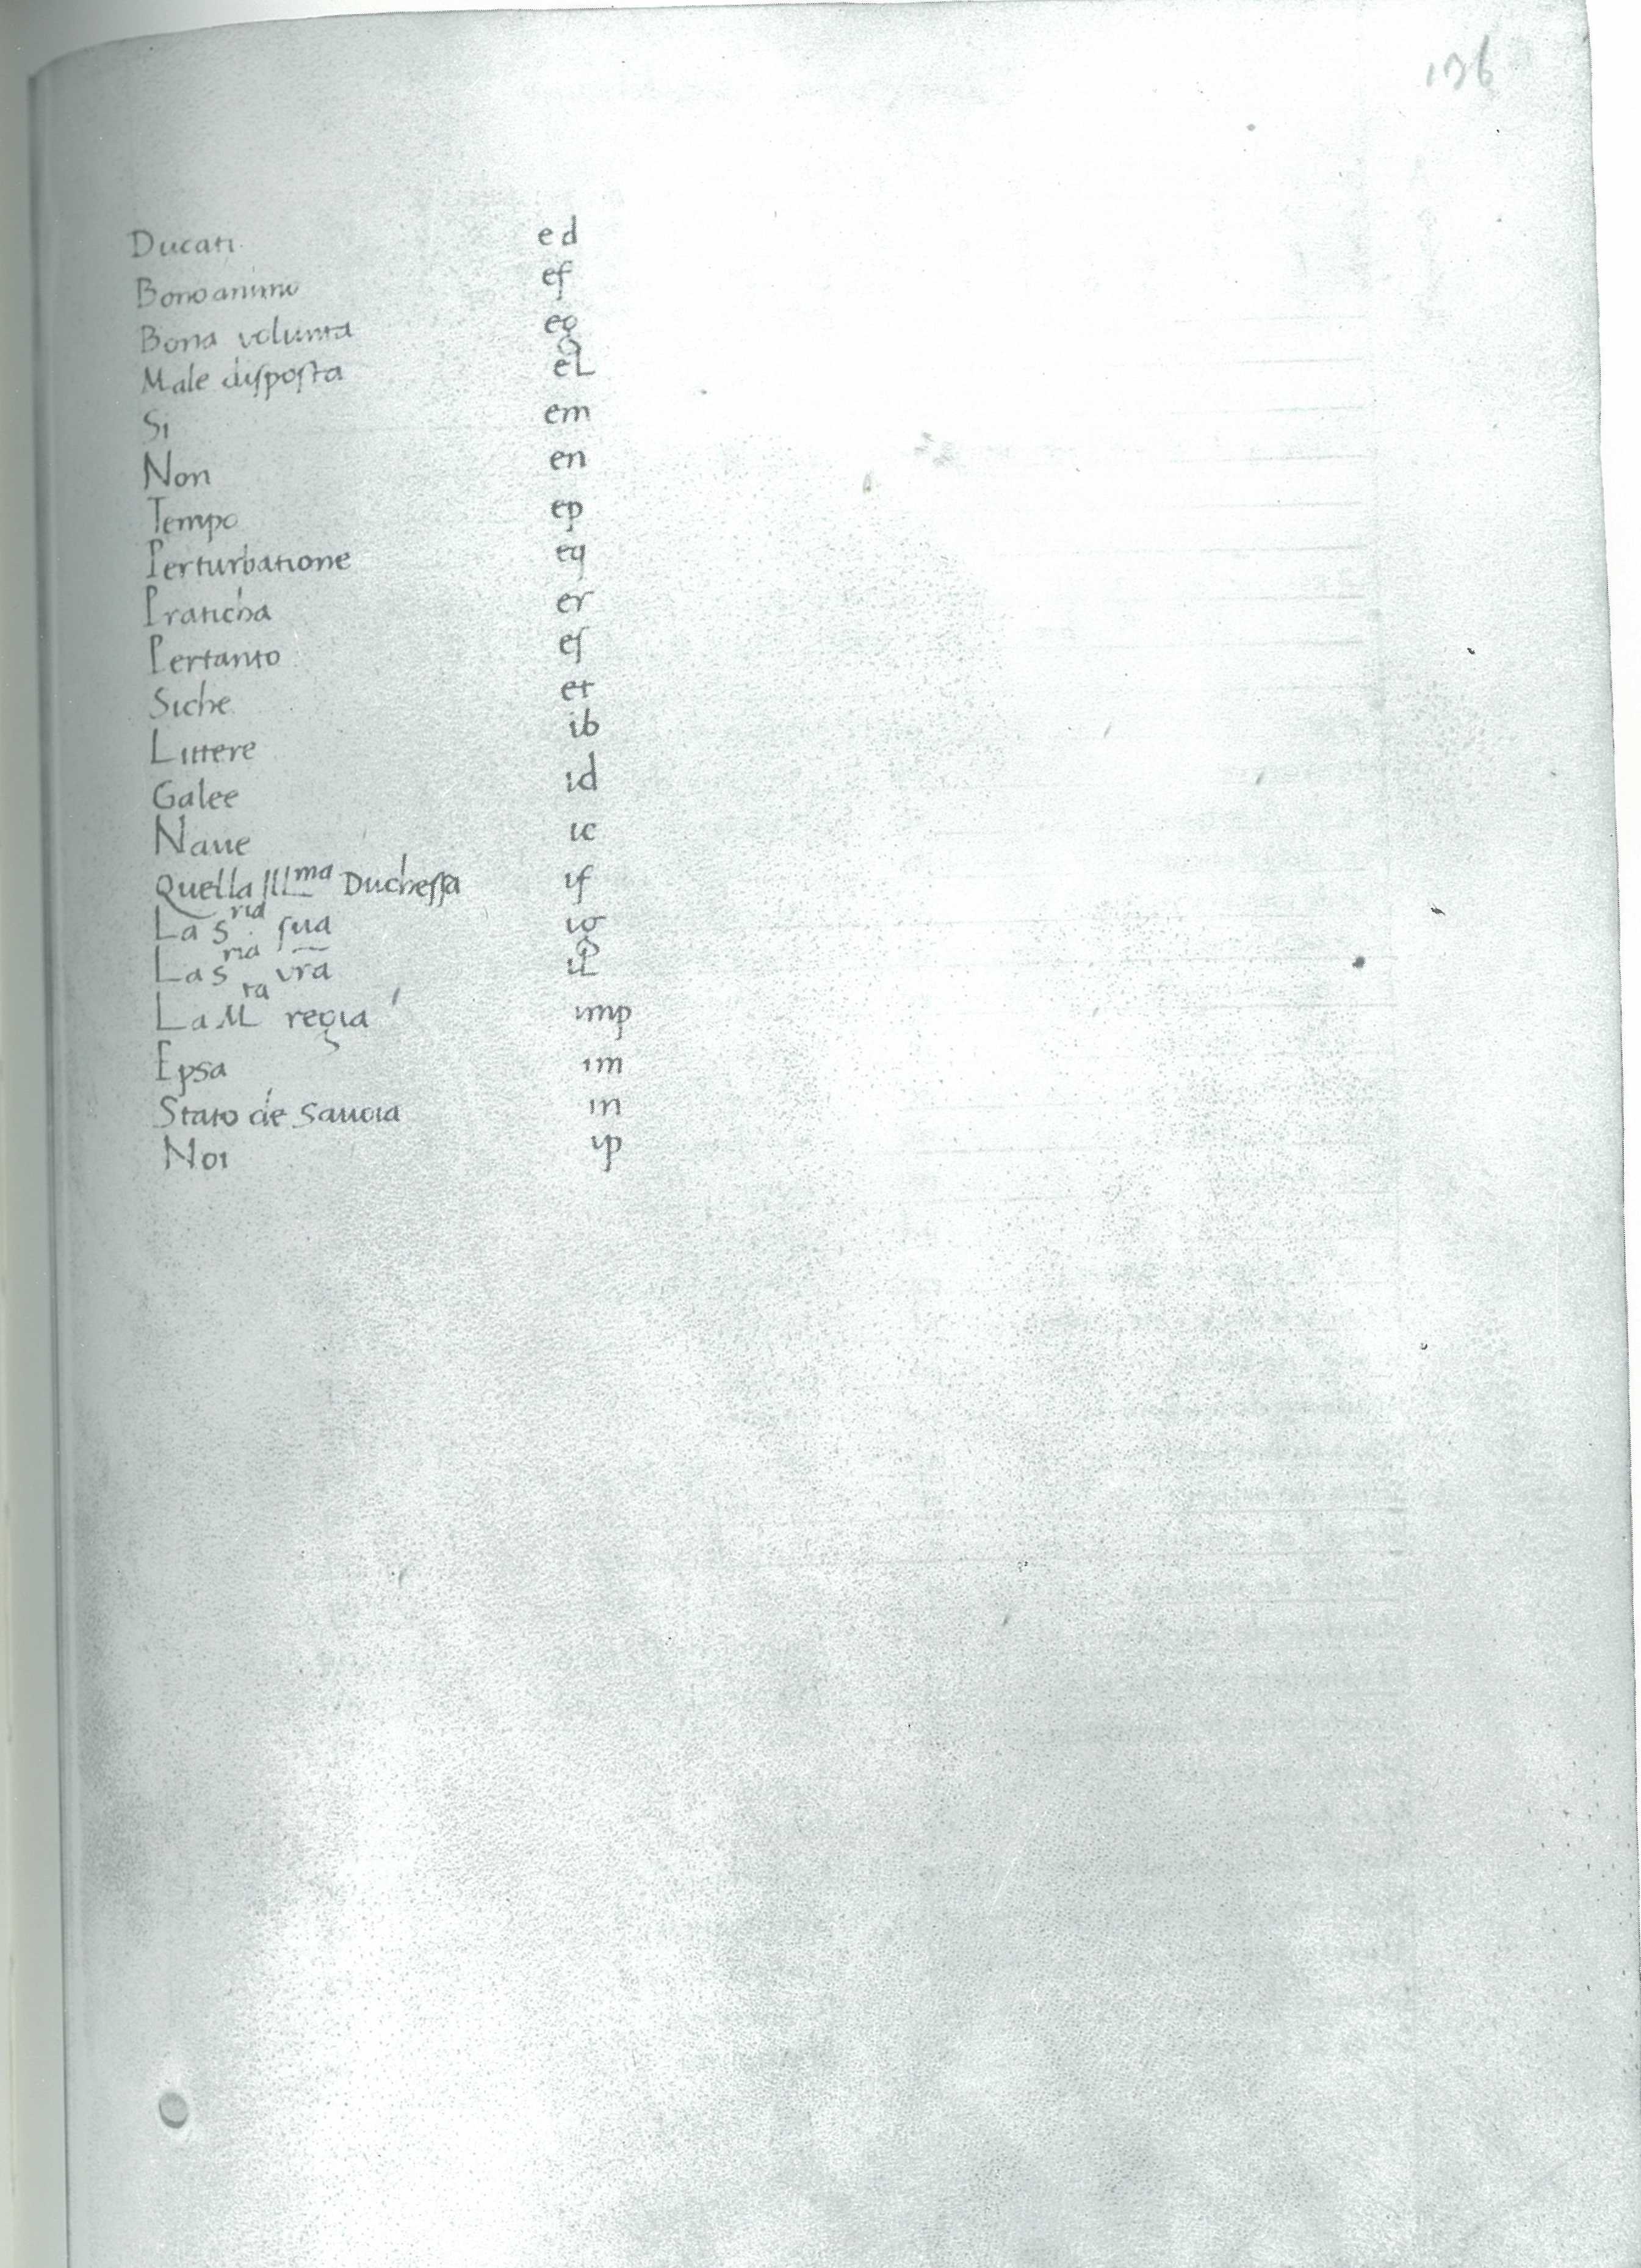 136
Ducati ed
Bono animo ef
Bona volunta eg
Male disposta el
Si em
Non en
Tempo ep
Perturbatione eq
Praticha er
Pertanto es
Siche et
Littere ib
Galee id
Naue ic
Quella Ill.ma Duchessa if
La S.ria sua ig
La S.ria vra il
La M.ta regia imp
Epsa im
Stato de Sauoia in
Noi ip